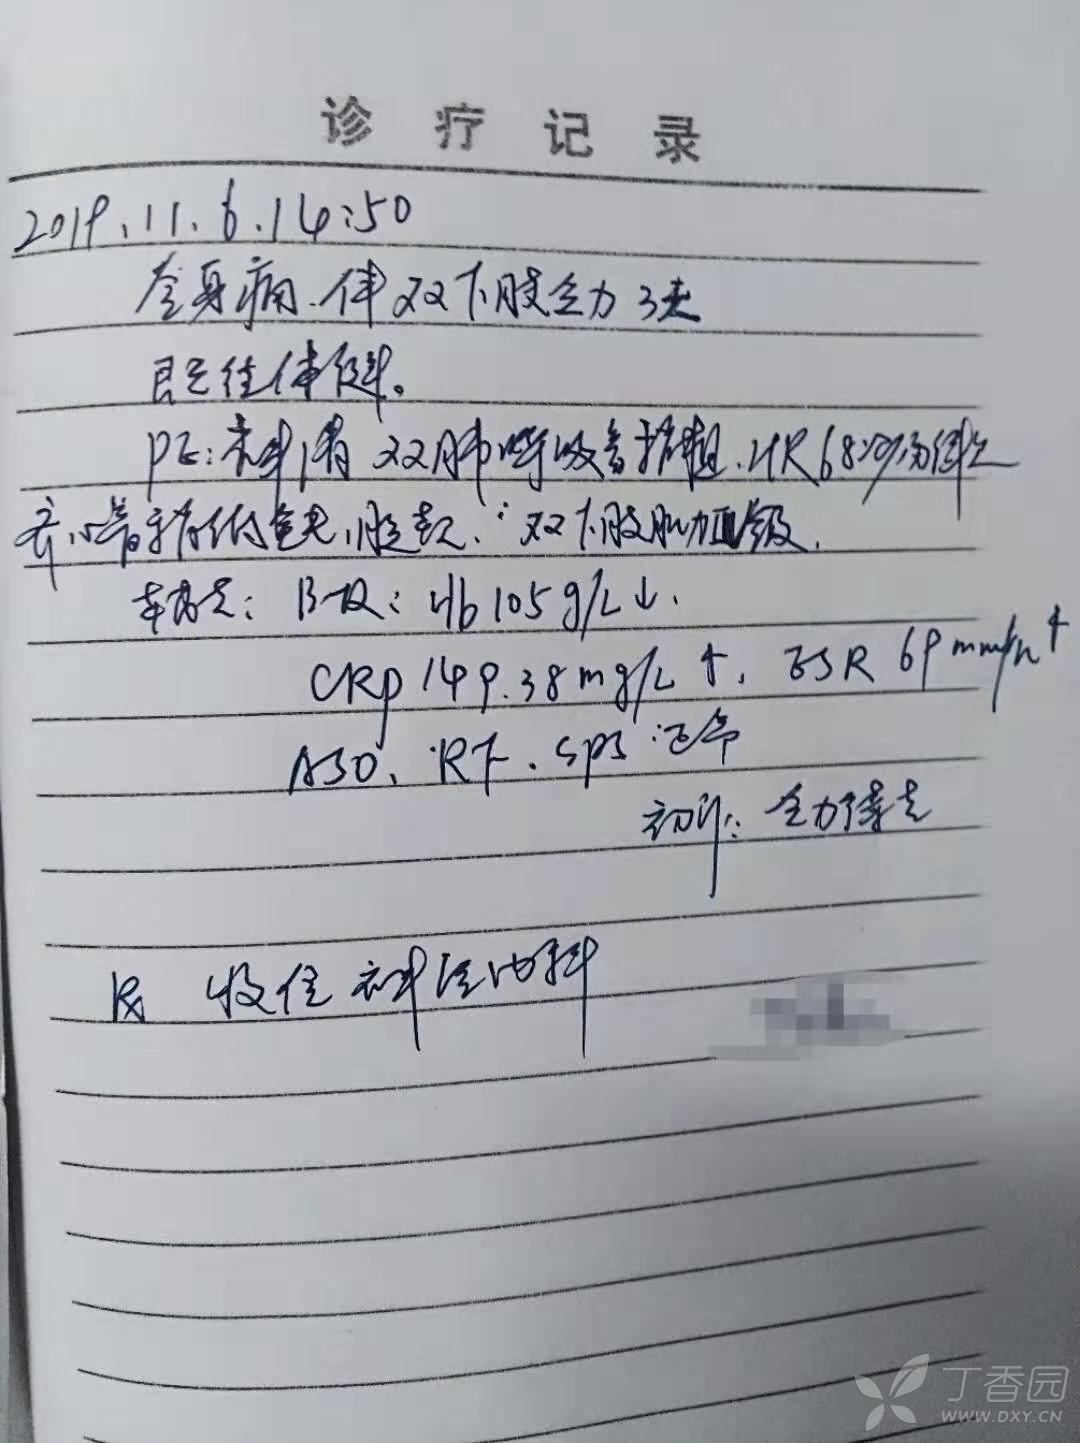 诊疗记录
2019.11.6.14:50
全身痛.伴双下肢乏力3天
既往体健。
PE:神清 双肺呼吸音粗.HR 68次/分律
齐,腹软,双下肢肌力Ⅲ级.
辅查:B-R:Hb 105g/L↓.
CRP 149.38mg/L↑.ESR 69mm/h↑
ASO、RF.
初诊:乏力待查
Rx 收住神经内科
丁香园
WWW.DXY.CN